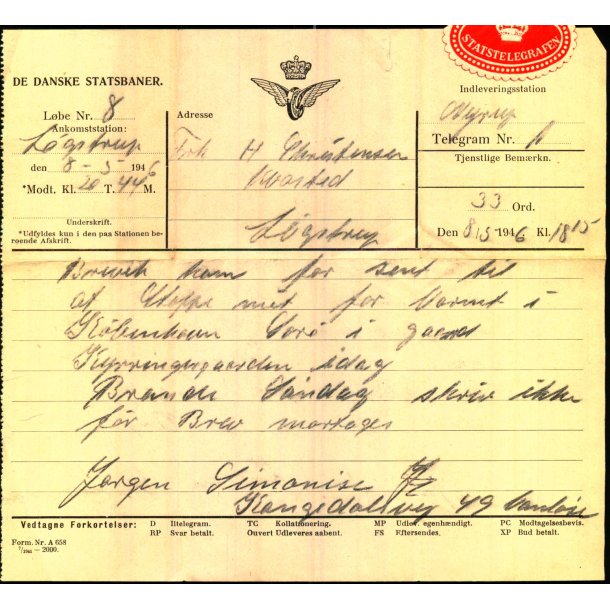 STATSTELEGRAFEN
DE DANSKE STATSBANER.
Løbe Nr. 8
Ankomststation:
Løgstrup
den 8-5 1946
*Modt. Kl. 20 T. 44 M.
Underskrift.
*Udfyldes kun i den paa Stationen be-
roende Afskrift.
Adresse
Frk H Christensen
Kvosted
Løgstrup
Indleveringsstation
Telegram Nr.
Tjenstlige Bemærkn.
33 Ord.
Den 8/5 1946 Kl. 1815
kom for sent til
at Stoppe mit for Varmt i
København Sorø i gaard
Kyrringegaarden idag
Brande Søndag skriv ikke
før Brev modtages
Jørgen Simonise
Kangedalsvej 49 Vanløse
Vedtagne Forkortelser: D Iltelegram. TC Kollationering. MP Udlev. egenhændigt. PC Modtagelsesbevis.
RP Svar betalt. Ouvert Udleveres aabent. FS Eftersendes. XP Bud betalt.
Form. Nr. A 658
7/1941 — 2000.